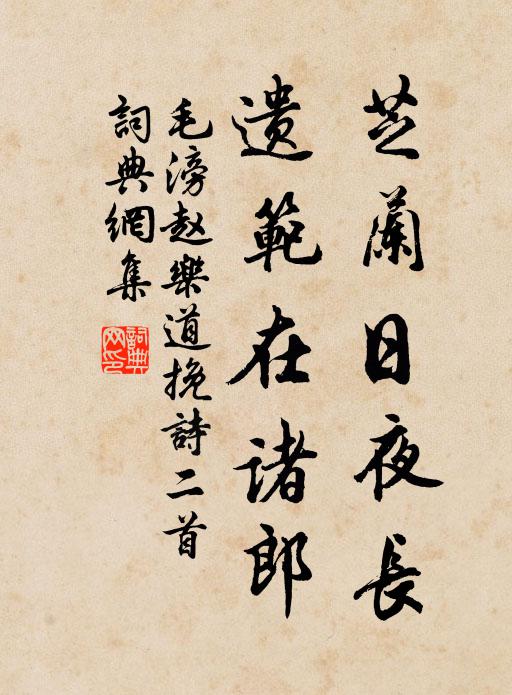 芝蘭日夜長
遗範在诸郎
毛滂赵樂道挽詩二首
詞典網集
詞典网印